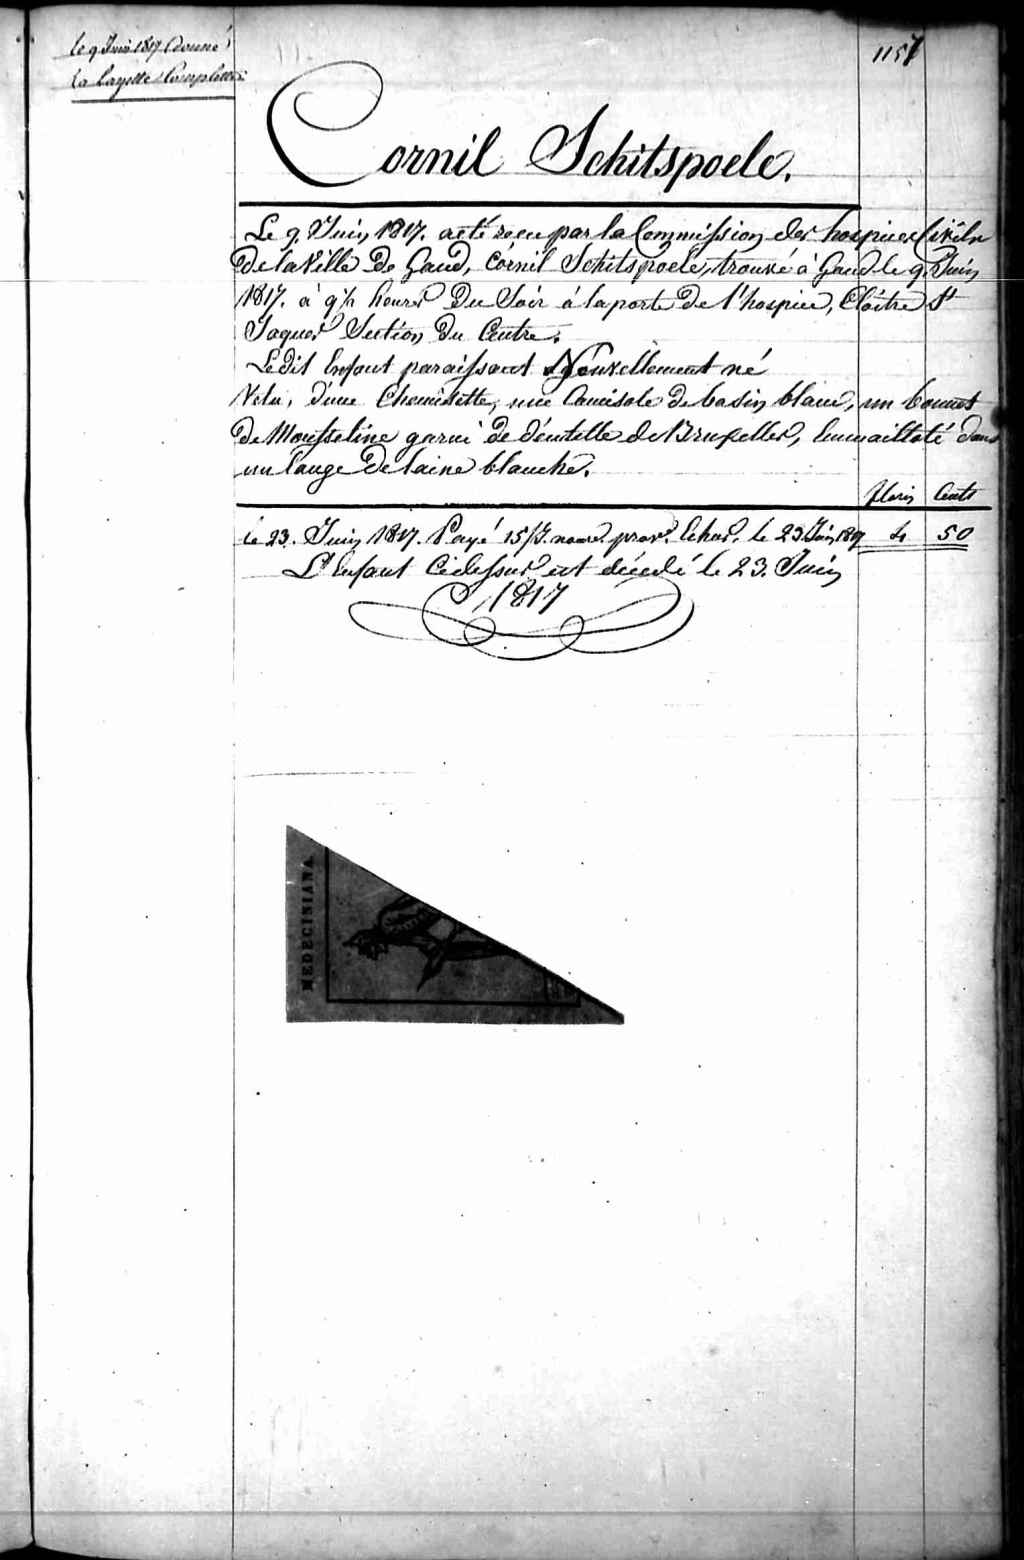 le 9 Juin 1817 donné
La Layette Complette
1157
Cornil Schitspoele.
Le 9. Juin 1817. a eté recu par la Commission des hospices Civils
de la Ville de Gand, Cornil Schitspoele, trouvé à Gand le 9. Juin
1817. à 9½ heures du Soir à la porte de l'hospice, Cloître St
Jaques Section du Centre.
Ledit Enfant paraissant Nouvellement né
Vetu, d'une Chemisette, une Camisole de basin blanc, un bonnet
de Mousseline garni de dentelle de Bruxelles, Emmailloté dans
un lange de laine blanche.
florin Cents
le 23. Juin 1817. Payé 15/j. nour. Echus, le 23 Juin 1817 4 50
L'Enfant Cidessus est décédé le 23. Juin
1817
MEDECINIANA.